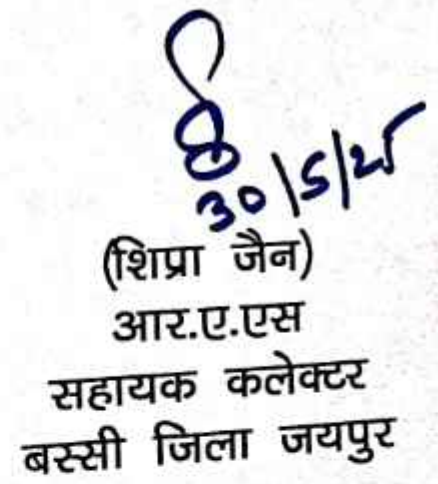 30/5/25
(शिप्रा जैन)
आर.ए.एस
सहायक कलेक्टर
बस्सी जिला जयपुर